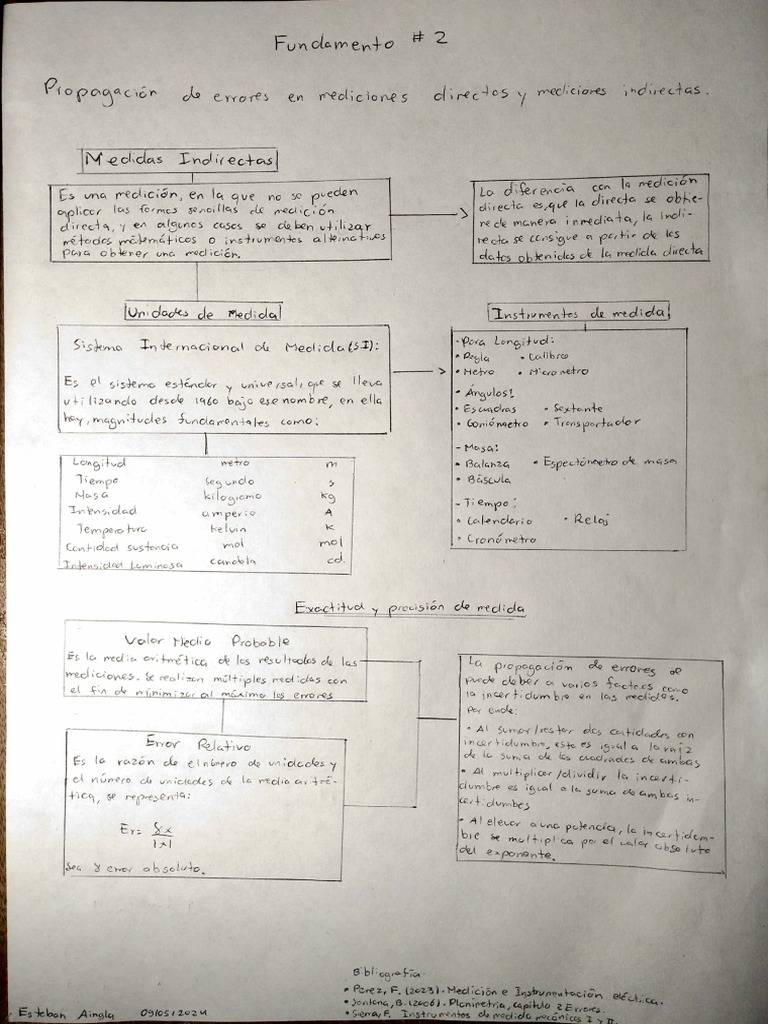 Fundamento # 2
Propagación de errores en mediciones directas y mediciones indirectas.
Medidas Indirectas
Es una medición, en la que no se pueden
aplicar las formas sencillas de medición
directa, y en algunos casos se deben utilizar
métodos matemáticos o instrumentos alternativos
para obtener una medición.
La diferencia con la medición
directa es, que la directa se obtie-
ne de manera inmediata, la indi-
recta se consigue a partir de los
datos obtenidos de la medida directa
Unidades de Medida
Sistema Internacional de Medida (S.I):
Es el sistema estándar y universal, que se lleva
utilizando desde 1960 bajo ese nombre, en ella
hay, magnitudes fundamentales como:
Longitud metro m
Tiempo segundo s
Masa kilogramo kg
Intensidad amperio A
Temperatura kelvin K
Cantidad sustancia mol mol
Intensidad Luminosa candela cd
Instrumentos de medida
- Para Longitud:
• Regla • Calibre
• Metro • Micrometro
• Ángulos:
• Escuadras • Sextante
• Goniómetro • Transportador
- Masa:
• Balanza • Espectómetro de masa
• Báscula
- Tiempo:
• Calendario • Reloj
• Cronómetro
Exactitud y precisión de medida
Valor Medio Probable
Es la media aritmética de los resultados de las
mediciones. Se realizan múltiples medidas con
el fin de minimizar al máximo los errores
Error Relativo
Es la razón de el número de unidades y
el número de unidades de la media arit mé-
tica, se representa:
Er = δx / |x|
Sea δ error absoluto.
La propagación de errores se
puede deber a varios factores como
la incertidumbre en las medidas.
Por ende:
• Al sumar/restar dos cantidades con
incertidumbre, este es igual a la raíz
de la suma de los cuadrados de ambas
• Al multiplicar/dividir la incerti-
dumbre es igual a la suma de ambas in-
certidumbes
• Al elevar a una potencia, la incertidum-
bre se multiplica por el valor absoluto
del exponente.
Bibliografía
• Pérez, F. (2023). Medición e Instrumentación eléctrica.
• Santana, B. (2006). Planimetria, capítulo 2 Errores.
• Serra, F. Instrumentos de medida mecánicos I y II.
Esteban Aingla 09/05/2024